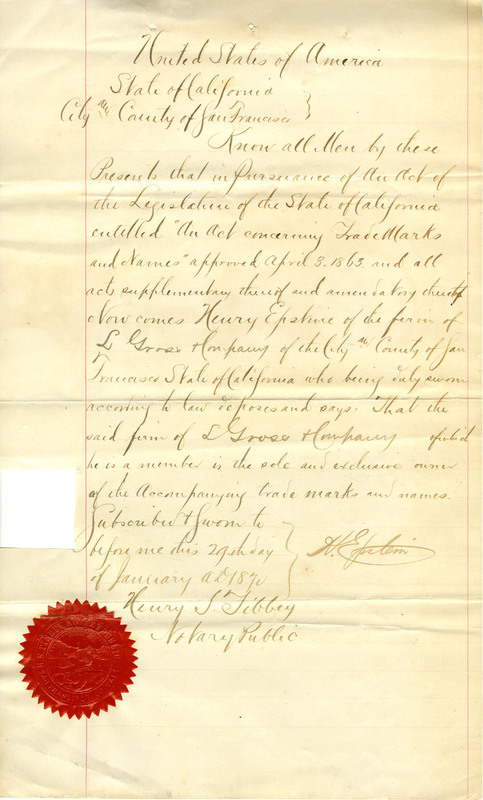 United States of America
State of California
City and County of San Francisco
Know all Men by these
Presents that in Pursuance of An Act of
the Legislature of the State of California
entitled "An Act concerning Trade Marks
and Names" approved April 3. 1863. and all
acts supplementary thereof and amendatory thereof
Now comes Henry Epstine of the firm of
L Gross & Company of the City and County of San
Francisco State of California who being duly sworn
according to law deposes and says. That the
said firm of L Gross & Company of which
he is a member is the sole and exclusive owner
of the Accompanying trade marks and names.
Subscribed & Sworn to
before me this 29th day
of January AD
H. Epstein
Henry S. Tibbey
Notary Public